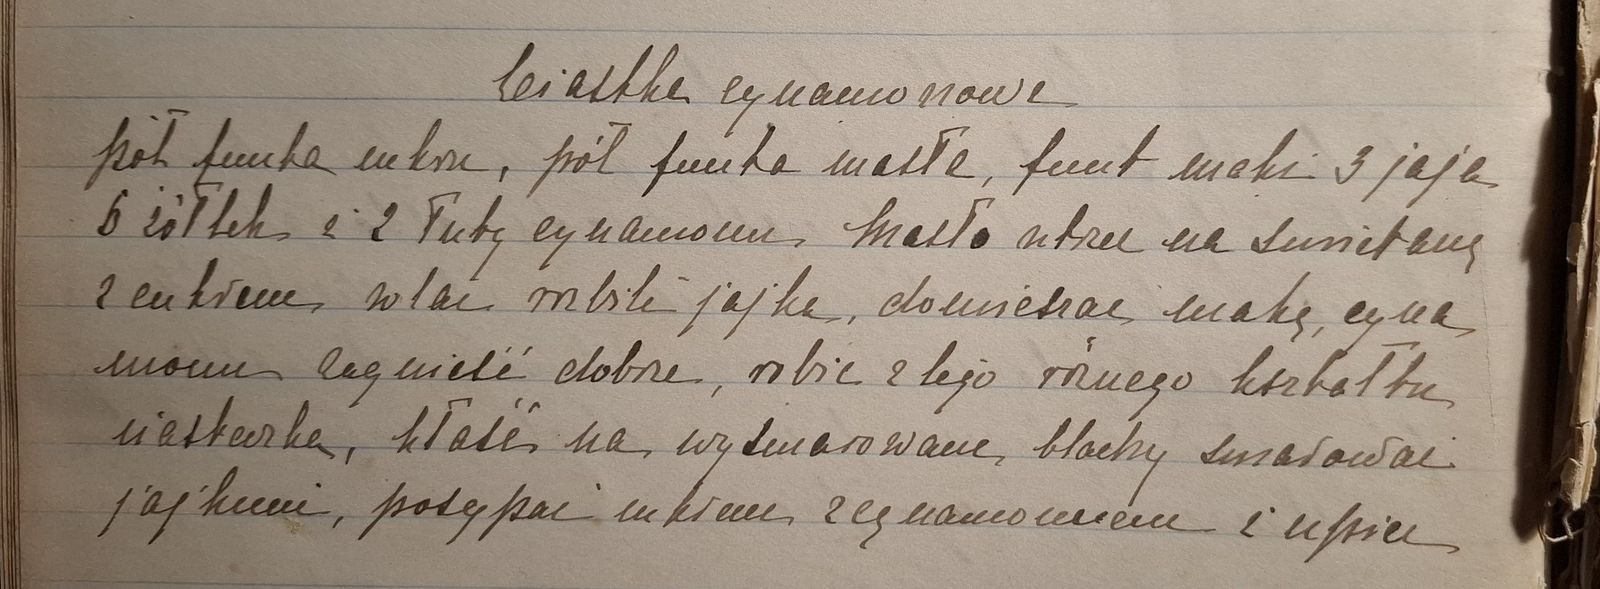 Ciastka cynamonowe
pół funta cukru, pół funta masła, funt mąki 3 jaja
6 żółtek i 2 łuty cynamonu Masło utrzeć na śmietanę
z cukrem wlać rozbite jajka, domieszać mąkę, cyna
monu zagnieść dobrze, robić z tego różnego kształtu
ciasteczka, kłaść na wysmarowane blachy smarować
jajkami, posypać cukrem z cynamonem i upiec